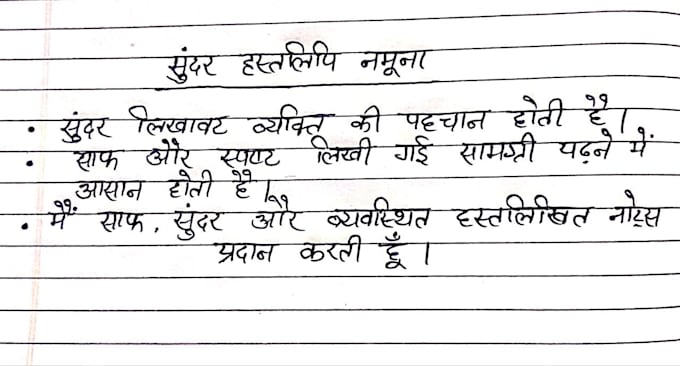 सुंदर हस्तलिपि नमूना
• सुंदर लिखावट व्यक्ति की पहचान होती है।
• साफ और स्पष्ट लिखी गई सामग्री पढ़ने में
आसान होती है।
• मैं साफ, सुंदर और व्यवस्थित हस्तलिखित नोट्स
प्रदान करती हूँ।